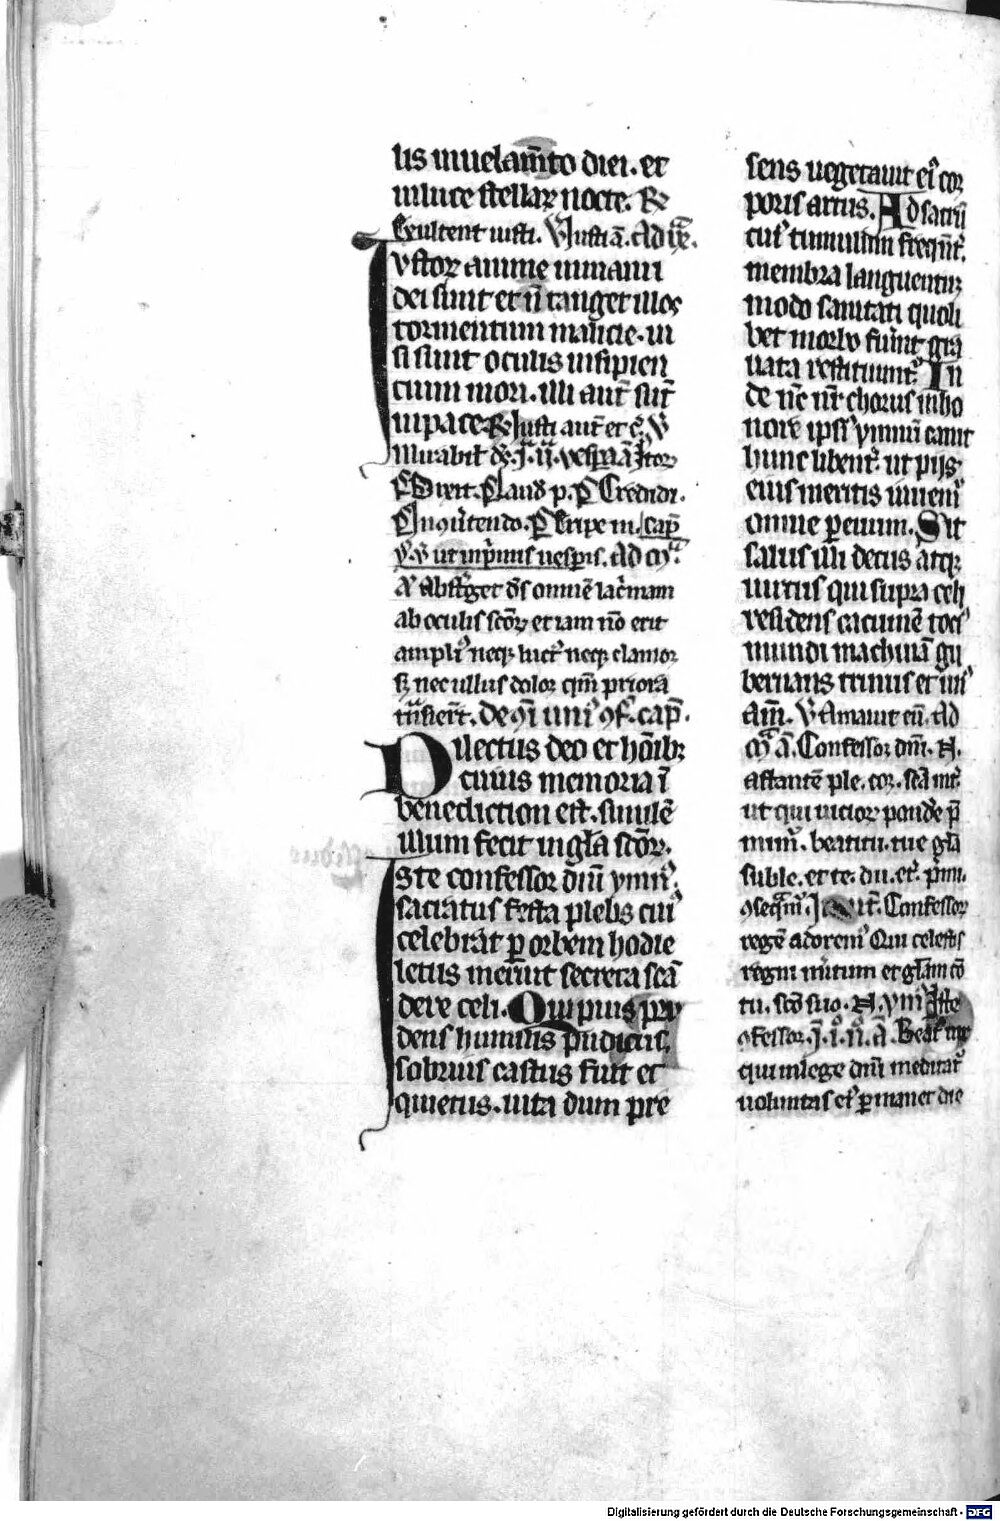 lis in uelam̄to diei. et
in luce stellaꝝ nocte. ℟
Exultent iusti. ℣ Justi ā. Ad
Vstoꝝ anime in manu
dei sunt et n̄ tanget illos
tormentum malicie. ui
si sunt oculis insipien
cium mori. illi aut̄ sūt
in pace. ℟ Justi aut̄
Mirabil
Dixit. Laud p. Credidi.
In ꝯu̇tendo. Eripe m. cap̄
ut in p̄mis uesꝑis. Ad
Abst̄get dꝰs omnē lac̄mam
ab oculis sc̄oꝝ et iam nō erit
ampliꝰ neqꝫ luctꝰ neqꝫ clamor
sꝫ nec ullus dolor qm̄ priora
t̄nsier̄t. De ꝯ̄i uniꝰ ꝯf. cap̄.
Dilectus deo et hōibꝫ
cuius memoria ī
benediction est. similē
illum fecit in gl̄a sc̄oꝝ.
Iste confessor dn̄i ymnꝰ.
sacratus festa plebs cuiꝰ
celebrat ꝑ orbem hodie
letus meruit secreta scā
dere celi. Qui pius pru
dens humilis pudicus,
sobrius castus fuit et
quietus. uita dum pre
sens uegetauit eiꝰ cor
poris artus. Ad sacrū
cuiꝰ tumulum freqn̄t̄.
membra languentiū
modo sanitati quoli
bet morbo fuīnt gra
uata restituunt̄. In
de nc̄ nr̄ chorus in ho
nore ipsiꝰ ymnū canit
hunc libent̄. ut pijs
eius meritis iuuemꝰ
omne ꝑ euum. Sit
salus illi decus atqꝫ
uirtus qui supra celi
residens cacumē tociꝰ
mundi machinā gu
bernans trinus et unꝰ
Am̄. ℣ Amauit eū. Ad
ā. Confessor dn̄i. N.
astantē ple. cor. scā int̄.
ut qui uicior ponde p̄
mimꝰ. beatitu. tue gl̄a
suble. et te. du. et̄. p̄mi.
ꝯseqmꝰ. Confessor
regē adoremꝰ Qui celestis
regni mītum et gl̄am cō
tu. scō suo. N. ymꝰ Iste
ꝯfessor. J. i. n̄. ā. Beatꝰ uir
qui in lege dn̄i meditatꝰ
uoluntas eiꝰ ꝑmanet die
Digitalisierung gefördert durch die Deutsche Forschungsgemeinschaft - DFG